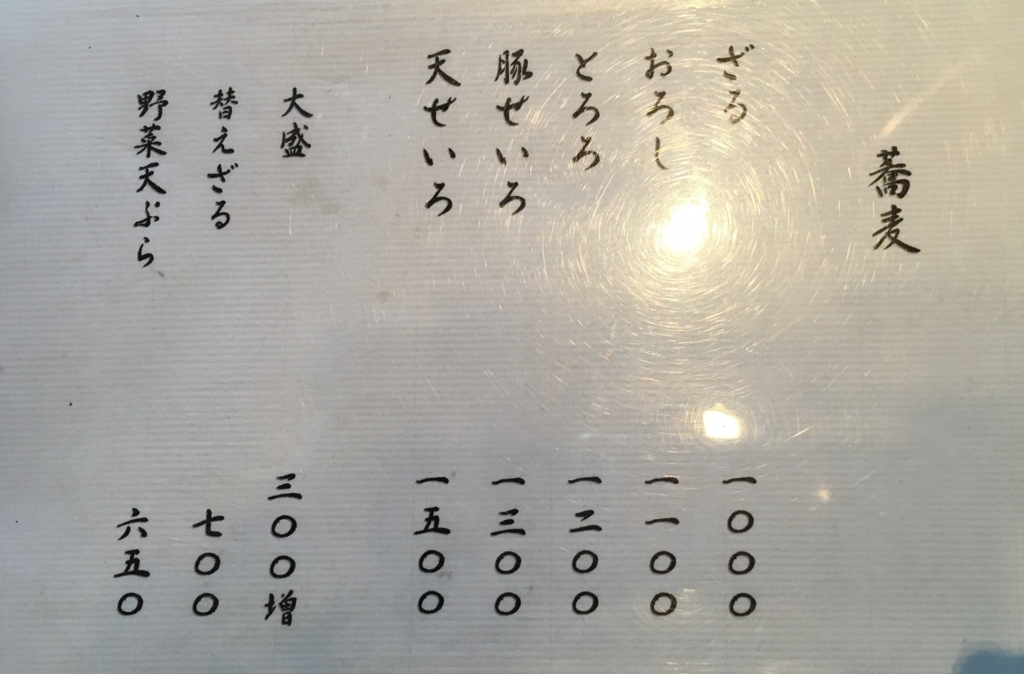 蕎麦
ざる 一〇〇〇
おろし 一一〇〇
とろろ 一二〇〇
豚せいろ 一三〇〇
天せいろ 一五〇〇
大盛 三〇〇増
替えざる 七〇〇
野菜天ぷら 六五〇